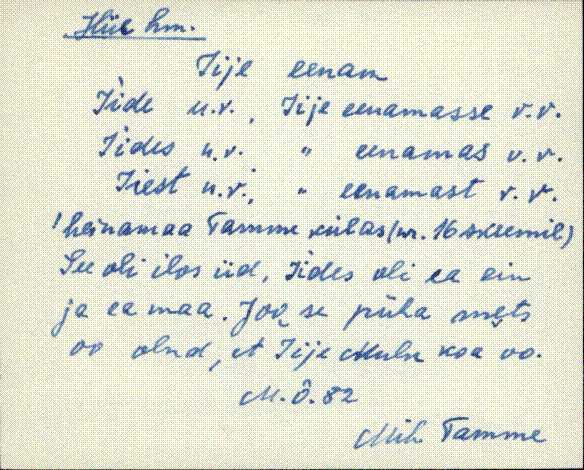 Hiie hm.
Iije eenam
Iide u.v., Iije eenamasse v.v.
Iides u.v. " eenamas v.v.
Iiest u.v., " eenamast v.v.
'heinamaa Tamme külas (nr. 16 skeemil)'
See oli ilos iid, iides oli ea ein
ja ea maa. Joo se püha mets
oo olnd, et Iije koa oo.
M. Õ. 82
Mih Tamme